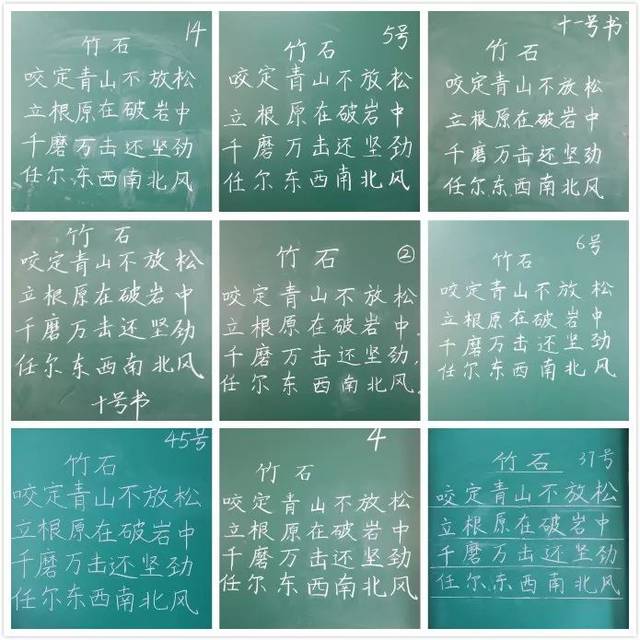 14
竹石
咬定青山不放松
立根原在破岩中
千磨万击还坚劲
任尔东西南北风
5号
竹石
咬定青山不放松
立根原在破岩中
千磨万击还坚劲
任尔东西南北风
十一号书
竹石
咬定青山不放松
立根原在破岩中
千磨万击还坚劲
任尔东西南北风
竹石
咬定青山不放松
立根原在破岩中
千磨万击还坚劲
任尔东西南北风
十号书
②
竹石
咬定青山不放松
立根原在破岩中
千磨万击还坚劲
任尔东西南北风
6号
竹石
咬定青山不放松
立根原在破岩中
千磨万击还坚劲
任尔东西南北风
45号
竹石
咬定青山不放松
立根原在破岩中
千磨万击还坚劲
任尔东西南北风
4
竹石
咬定青山不放松
立根原在破岩中
千磨万击还坚劲
任尔东西南北风
竹石 37号
咬定青山不放松
立根原在破岩中
千磨万击还坚劲
任尔东西南北风